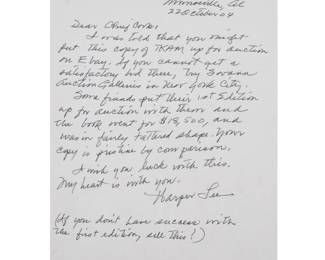 Monroeville, AL
22 October 04
Dear
I was told that you might
put this copy of TKAM up for auction
on E bay. If you cannot get a
satisfactory bid there, try Swann
Auction Galleries in New York City.
Some friends put their 1st Edition
up for auction with them and
the book went for $18,500, and
was in fairly tattered shape. Your
copy is pristine by comparison.
I wish you luck with this.
My heart is with you.
Harper Lee
(If you don't have success with
the first edition, sell this!)